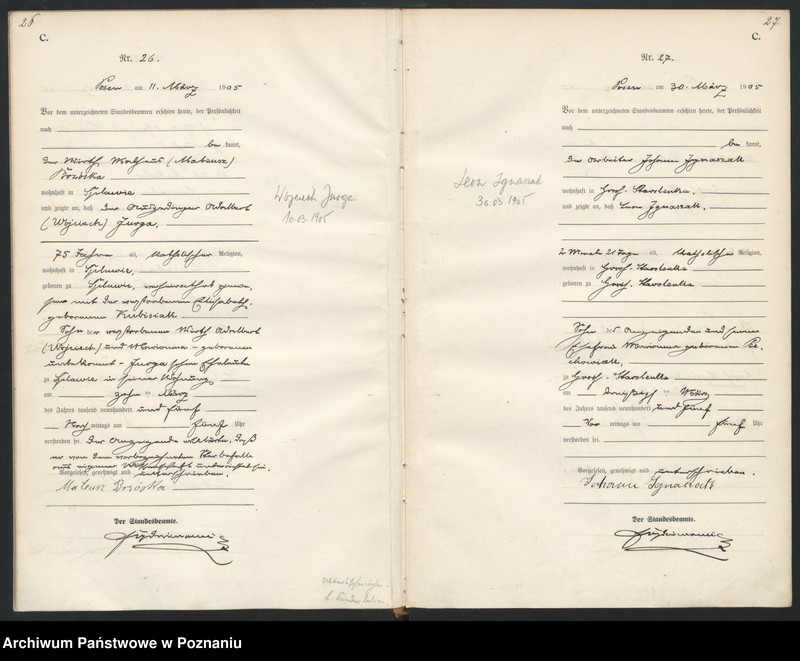 26
C.
Nr. 26.
Posen am 11. März 1905
Vor dem unterzeichneten Standesbeamten erschien heute, der Persönlichkeit
nach
be kannt,
der Wirth Mathaeus (Mateusz)
Brzóska
wohnhaft in Spławie
und zeigte an, daß der Ausgedinger Adalbert
(Wojciech) Jurga,
75 Jahre alt, katholischer Religion,
wohnhaft in Spławie,
geboren zu Spławie, verheirathet gewe-
sen mit der verstorbenen Elisabeth,
geborenen Kubisiak
Sohn der verstorbenen Wirth Adalbert
(Wojciech) und Marianna - geborenen
unbekannt - Jurga'schen Eheleute
zu Spławie in seiner Wohnung
am zehn ten März
des Jahres tausend neunhundert und fünf
Vor mittags um fünf Uhr
verstorben sei. Der Anzeigende erklärte, daß
er von dem vorbezeichneten Sterbefalle
aus eigener Wissenschaft unterrichtet sei.
Vorgelesen, genehmigt und unterschrieben.
Mateusz Brzóska
Der Standesbeamte.
Wojciech Jurga
10.03.1905
27
C.
Nr. 27.
Posen am 30. März 1905
Vor dem unterzeichneten Standesbeamten erschien heute, der Persönlichkeit
nach
be kannt,
der Arbeiter Johann Ignaszak
wohnhaft in Gross-Starolenka,
und zeigte an, daß Leon Ignaszak,
2 Monate 21 Tage alt, katholischer Religion,
wohnhaft in Gross-Starolenka
geboren zu Gross-Starolenka
Sohn des Anzeigenden und seiner
Ehefrau Marianna geborenen
zu Gross-Starolenka
am dreißigsten März
des Jahres tausend neunhundert und fünf
Vor mittags um fünf Uhr
verstorben sei.
Vorgelesen, genehmigt und unterschrieben.
Johann Ignaszak
Der Standesbeamte.
Leon Ignaszak
30.03.1905
Archiwum Państwowe w Poznaniu